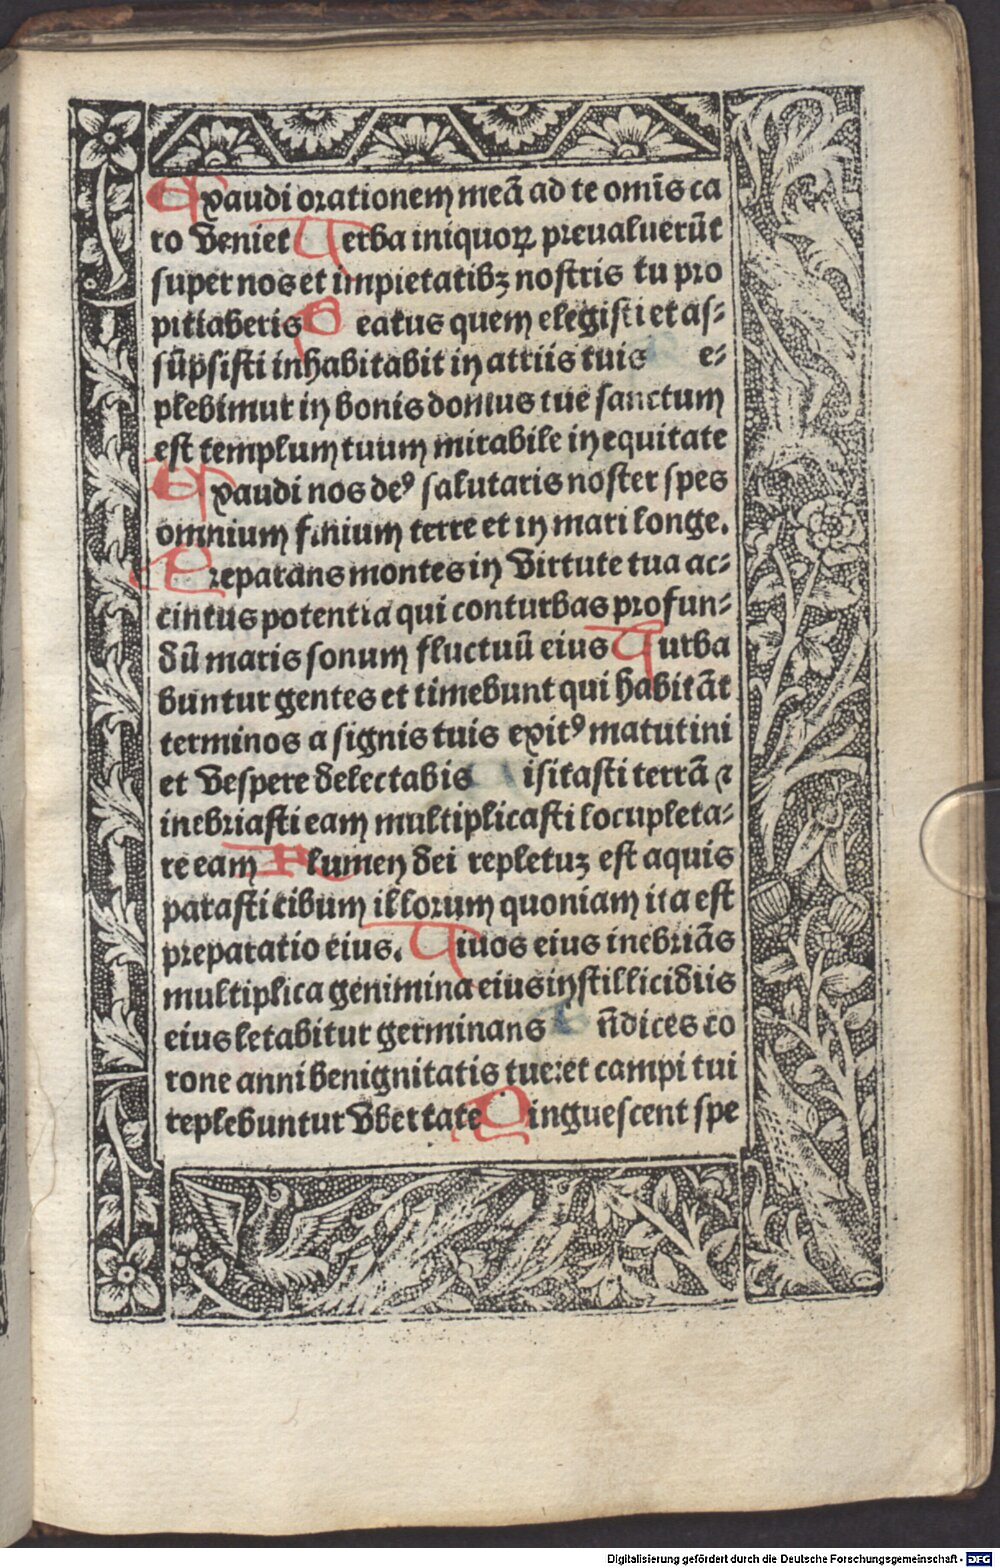 Exaudi orationem meā ad te omīs ca
ro veniet Verba iniquoꝝ preualuerūt
super nos et impietatibꝫ nostris tu pro
pitiaberis Beatus quem elegisti et as⸗
sūpsisti inhabitabit in atriis tuis Re⸗
plebimur in bonis domus tue sanctum
est templum tuum mirabile in equitate
Exaudi nos deꝰ salutaris noster spes
omnium finium terre et in mari longe.
Preparans montes in virtute tua ac⸗
cintus potentia qui conturbas profun⸗
dū maris sonum fluctuū eius Turba
buntur gentes et timebunt qui habitāt
terminos a signis tuis exitꝰ matutini
et vespere delectabis Visitasti terrā ⁊
inebriasti eam multiplicasti locupleta⸗
re eam Flumen dei repletuꝫ est aquis
parasti cibum illorum quoniam ita est
preparatio eius. Riuos eius inebriās
multiplica genimina eius in stillicidiis
eius letabitur germinans Bn̄dices co
rone anni benignitatis tue:et campi tui
replebuntur vbertate Pinguescent spe
Digitalisierung gefördert durch die Deutsche Forschungsgemeinschaft - DFG